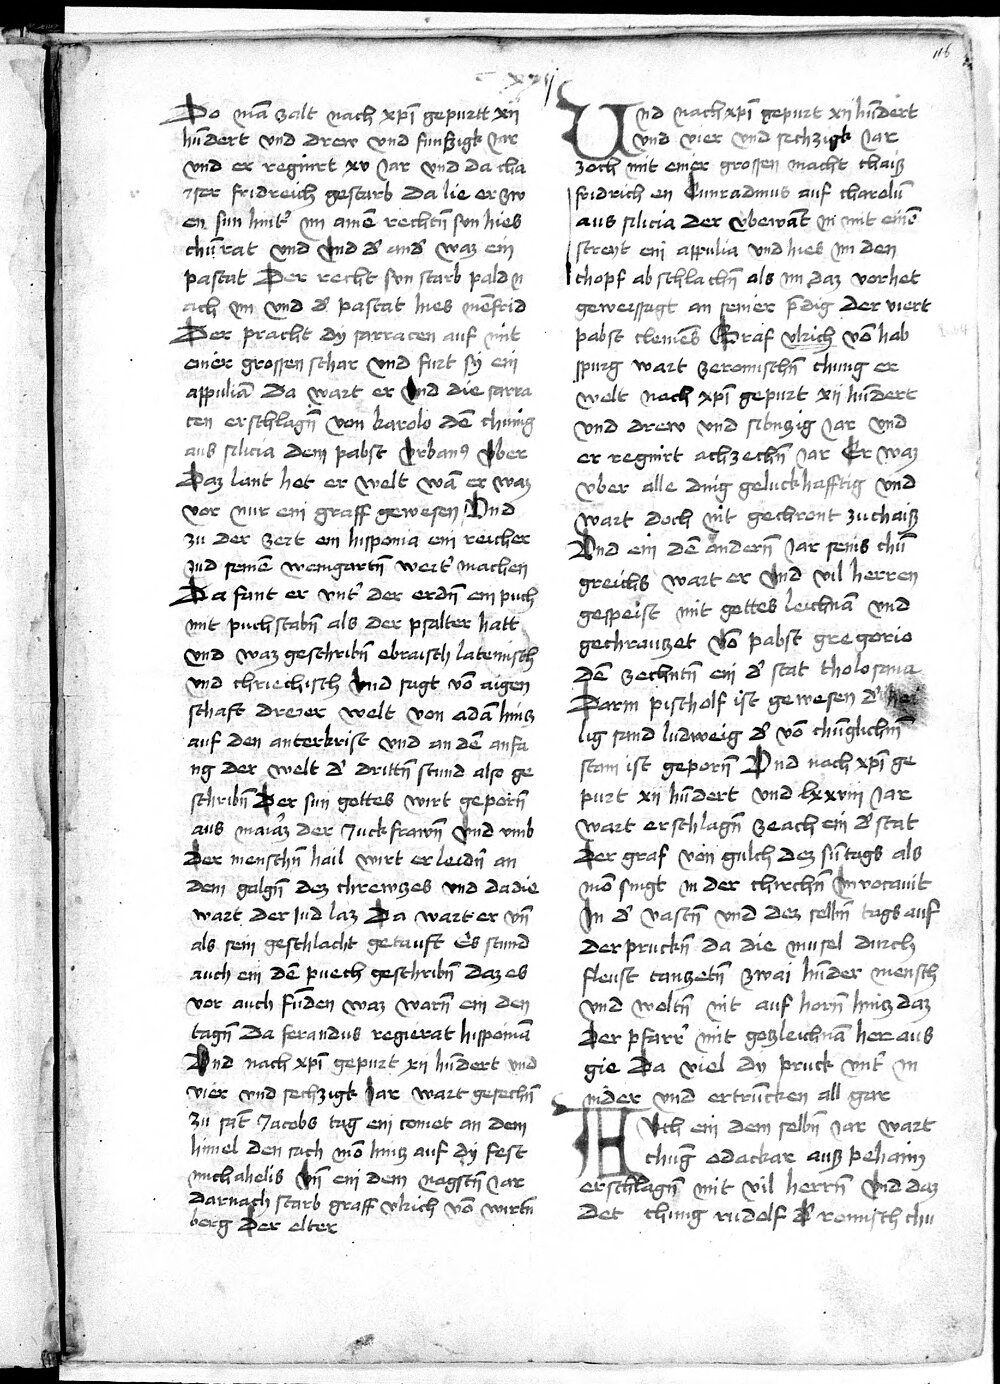 116
xxij
Do mā zalt nach xp̄i gepurtt xij
hūdert vnd drew vnd funfzigk Jar
vnd er regnirt xv Jar vnd da cha
yser fridreich gestarb da lie er zw
en sun hint' im ainē rechtn̄ sun hies
chūrat vnd vnd d' and' waz ein
pastat Der recht sun starb pald n
ach im vnd d' pastat hies menfrid
Der pracht dy sarracen auf mit
einer grossen schar vnd furt sy ein
appuliā Da wart er vnd die sarra
cen erschlagn̄ von karolo dē chunig
aus silicia dem pabst vrban9 vber
Daz lant het er welt wā er waz
vor nur ein graff gewesen Vnd
zu der zeit ein hisponia ein reicher
Jud seinē weingartn̄ weit' machen
Da fant er vnt' der erdn̄ ein puch
mit puchstabn̄ als der psalter hatt
vnd waz geschribn̄ ebraisch lateinisch
vnd chriechisch vnd sagt vō aigen
schaft dreyer welt von adā hintz
auf den anterkrist vnd an dē anfa
ng der welt d' drittn̄ stund also ge
schribn̄ Der sun gottes wirt geporn̄
aus maiaz der Juckfrawn̄ vnd vmb
Der menschn̄ hail wirt er leidn̄ an
dem galgn̄ dez chrewtzes vnd da die
wart der Jud laz Da wart er vn̄
als sein geschlacht getauft Es stund
auch ein dē puech geschribn̄ daz es
vor auch fūden waz warn̄ ein den
tagn̄ Da ferandus regierat hisponiā
Vnd nach xp̄i gepurt xij hūdert vnd
vier vnd sechzigk Jar wart gesechn̄
zu sāt Jacobs tag ein comet an dem
himel den sach mō hintz auf dy fest
michahelis vn̄ ein dem nagstn̄ Jar
darnach starb graff vlrich vō wirtn̄
berg Der elter
Vnd nach xp̄i gepurt xij hūdert
vnd vier vnd sechzigk Jar
zoch mit einer grossen macht chaiß
fridrich en Cunradinus auf charolū
aus silicia der vberwāt in mit einē
streyt ein appulia vnd hies im den
chopf abschlachn̄ als im daz vorhet
geweissagt an seiner p̄dig der viert
pabst clemēs Graf vlrich vō hab
spurg wart zeromischn̄ chunig er
welt nach xp̄i gepurt xij hūdert
vnd drew vnd sibnzig Jar vnd
er regnirt achzechn̄ Jar Er waz
vber alle ding geluckhafftig vnd
wart doch nit gechront zuchaiß
Vnd ein dē andern̄ Jar seins chū
greichs wart er vnd vil herren
gespeist mit gottes leichnā vnd
gechrautzet vō pabst gregorio
dē zechntn̄ ein d' stat tholosana
Darin pischolf ist gewesen d' hei
lig sand ludweig d' vō chūglichn̄
stam ist geporn̄ Vnd nach xp̄i ge
purt xij hūdert vnd lxxviij Jar
wart erschlagn̄ zeach ein d' stat
Der graf von gulch dez sūtags als
mō singt in der chirchn̄ Jnvocavit
Jn d' vastn̄ vnd dez selbn̄ tags auf
der pruckn̄ da die musel durch
fleust tanzetn̄ zwai hūder mensch
vnd woltn̄ nit auf horn̄ hintz daz
Der pfarr' mit gotzleichnā her aus
gie Da viel dy pruck vnt' in
nider vnd ertrūcken all gar
Auch ein dem selbn̄ Jar wart
chūg odackar auß pehaim
erschlagn̄ mit vil herrn̄ vnd daz
det chung rudolf d' romisch chu